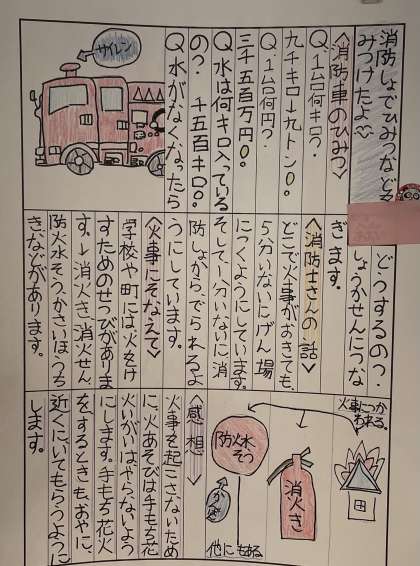 消防しょでひみつなどを
みつけたよ♡
〈消防車のひみつ〉
Q.1台何キロ?
九千キロ→九トン0。
Q.1台何円?
三千五百万円0。
Q水は何キロ入っている
の? 千五百キロ0。
Q水がなくなったら
サイレン
どうするの?
しょうかせんにつな
ぎます。
〈消防士さんの話〉
どこで火事がおきても、
5分いないにげん場
につくようにしています。
そして1分いないに消
防しょから、でられるよ
うにしています。
〈火事にそなえて〉
学校や町には火をけ
すためのせつびがありま
す。→消火き、消火せん、
防火水そう、かさいほうち
きなどがあります。
火事につか
われる。
消火き
防火水
そう
かんばん
他にもある
〈感想〉
火事を起こさないため
に、火あそびは手もち花
火いがいはやらないよう
にします。手もち花火
をするときも、おやに、
近くにいてもらうように
します。